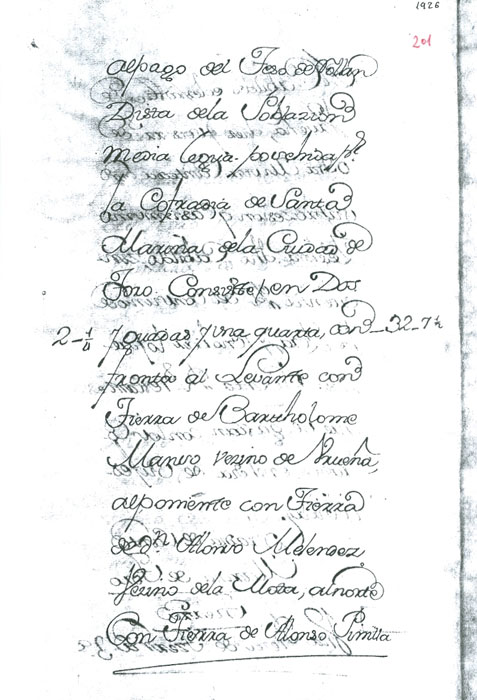 1926
201
al pago del Teso de Tollan
Dista dela Poblazion
media legua. posehida pr.
la Cofradia de Santa
Marina dela Ciudad de
Toro. Consiste en Dos
2-1/4 Yguadas y una quarta, con 32-7½
fronta al Levante con
Tierra de Bartholome
Manso Vezino de Vrueña,
al poniente con Tierra
de Dn. Alonso Melendez
Vezino dela Mota, al norte
Con Tierra de Alonso Pinilla